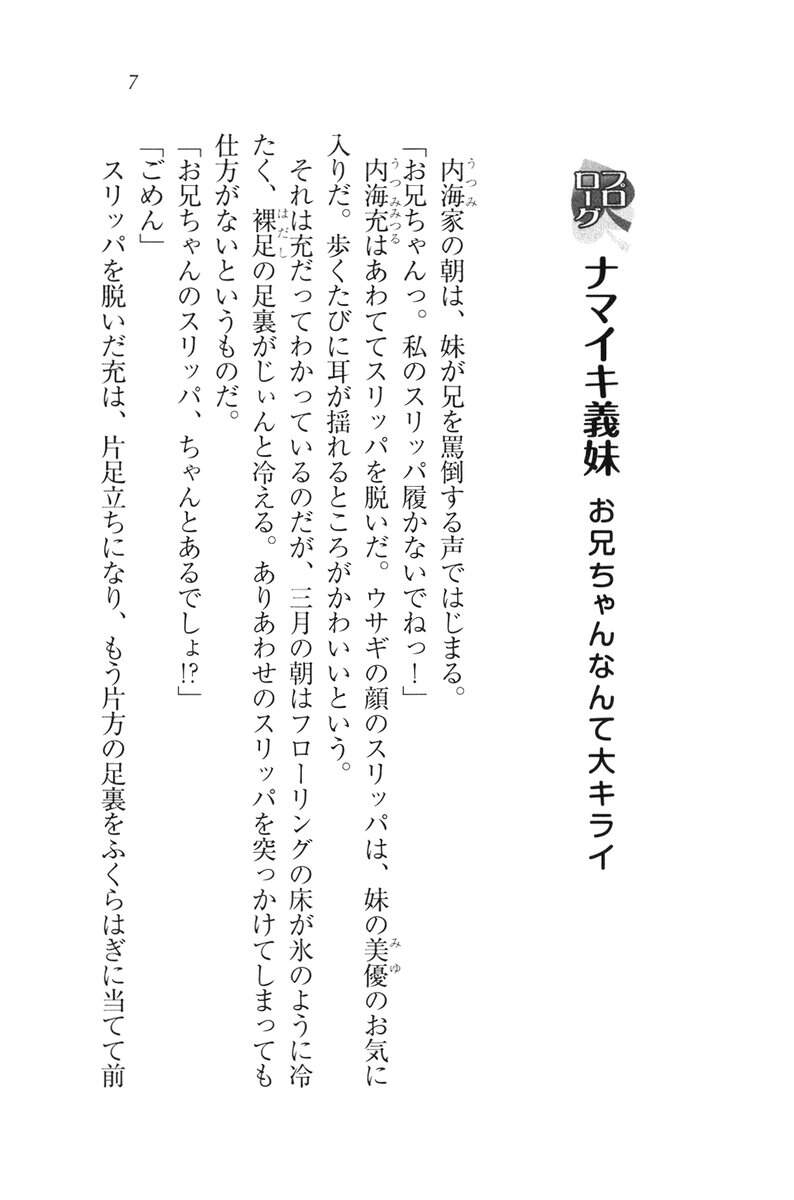 7
プロローグ
ナマイキ義妹 お兄ちゃんなんて大キライ
内海家の朝は、妹が兄を罵倒する声ではじまる。
「お兄ちゃんっ。私のスリッパ履かないでねっ！」
内海充はあわててスリッパを脱いだ。ウサギの顔のスリッパは、妹の美優のお気に
入りだ。歩くたびに耳が揺れるところがかわいいという。
それは充だってわかっているのだが、三月の朝はフローリングの床が氷のように冷
たく、裸足の足裏がじぃんと冷える。ありあわせのスリッパを突っかけてしまっても
仕方がないというものだ。
「お兄ちゃんのスリッパ、ちゃんとあるでしょ!?」
「ごめん」
スリッパを脱いだ充は、片足立ちになり、もう片方の足裏をふくらはぎに当てて前